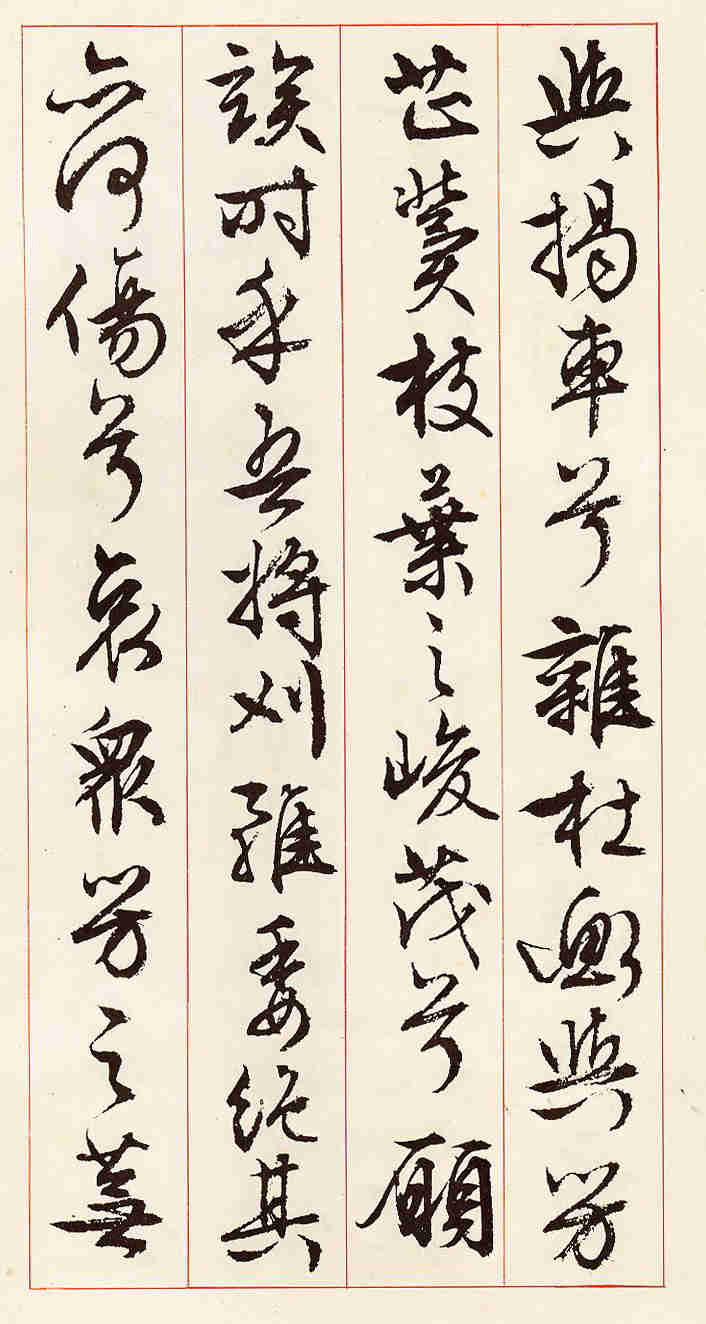 與揭車兮雜杜衡與芳
芷蓂枝葉之峻茂兮願
竢时乎吾將刈雖萎絕其
亦何傷兮哀眾芳之蕪